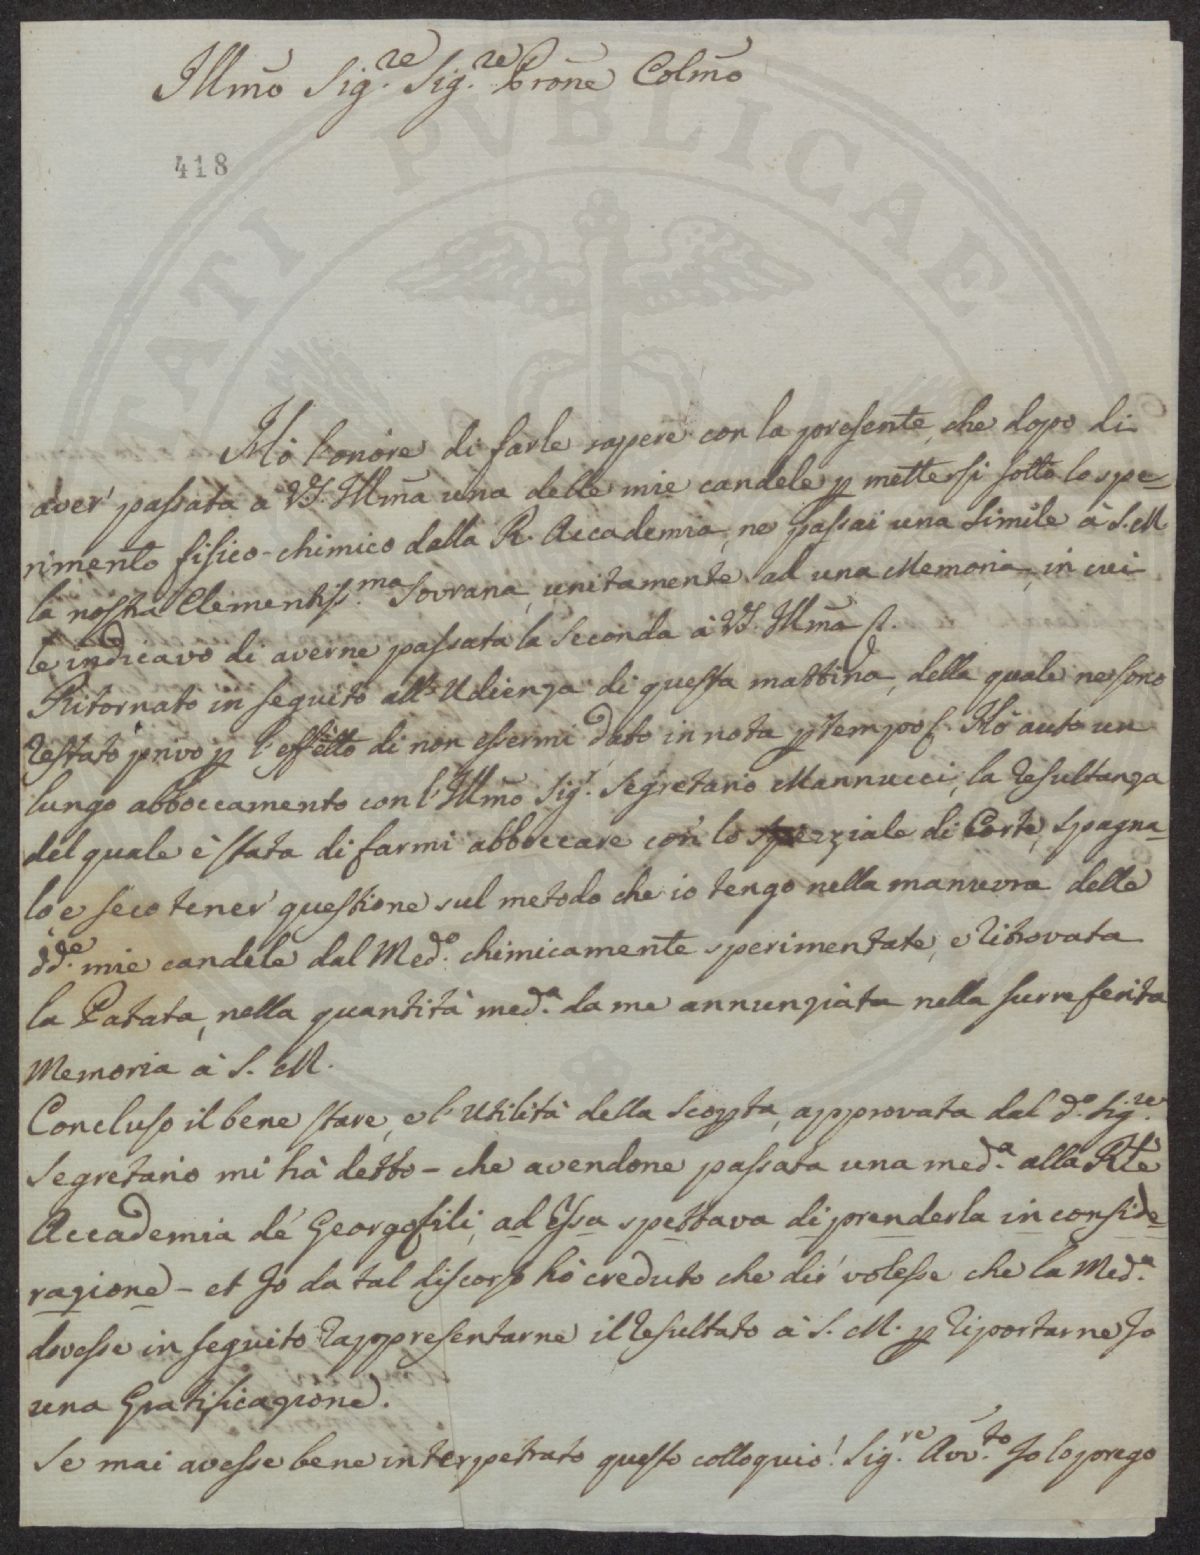 Illmo Sig.re Sig.re Prone Colmo
418
Hò l'onore di farle sapere con la presente, che dopo di
aver' passata à VS. Illma una delle mie candele p mettersi sotto lo spe-
rimento fisico-chimico dalla R. Accademia, ne passai una simile à S. M
la nostra Clementiss.ma Sovrana, unitamente ad una Memoria, in cui
le indicavo di averne passata la seconda à VS. Illma
Ritornato in seguito all'Udienza di questa mattina, della quale ne sono
restato privo p l'effetto di non essermi dato in nota p tempo. Hò auto un
lungo abboccamento con l'Illmo Sig.r Segretario Mannucci, la resultanza
del quale è stata di farmi abboccare con lo speziale di Corte, spagna-
lo e seco tener' questione sul metodo che io tengo nella manuvra delle
dd.e mie candele dal Med.o chimicamente sperimentate, e ritrovata
la Patata, nella quantità med.a da me annunziata nella surreferita
Memoria à S. M.
Concluso il bene stare, e l'Utilità della scopta, approvata dal d.o Sig.re
Segretario mi hà detto - che avendone passata una med.a alla Rle
Accademia dé Georgofili, ad Essa spettava di prenderla in conside-
razione - et Jo da tal discorso hò creduto che dir' volesse che la Med.a
dovesse in seguito rappresentarne il resultato à S. M. p riportarne Jo
una Gratificazione.
Se mai avesse bene interpetrato questo colloquio! Sig.re Avv.to Jo lo prego
ATI PVBLICAE